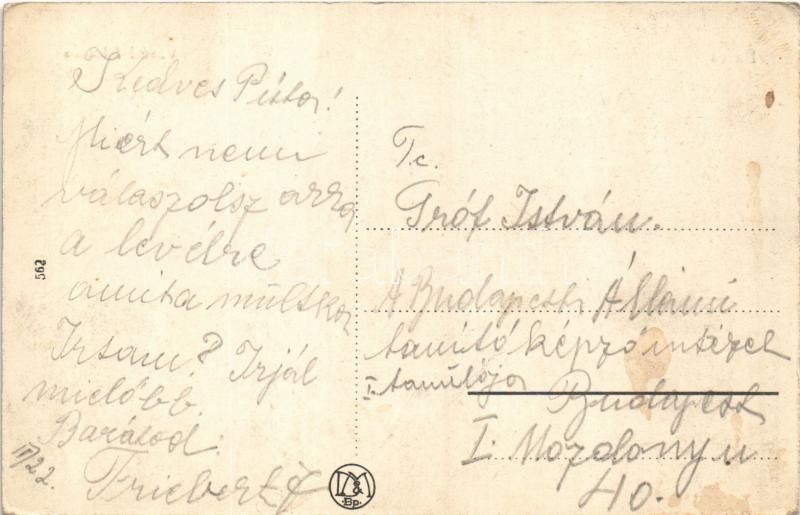 Kedves Pista!
Miért nem
válaszolsz arra
a levélre
amit a múltkor
Irtam? Irjál
mielőbb.
Barátod
Friebert F
IV/22.
562
T c.
Gróf István.
A Budapesti Állami
tanitóképző intézet
I. tanulója
Budapest
I. Mozdony u
40.
M & D
Bp.